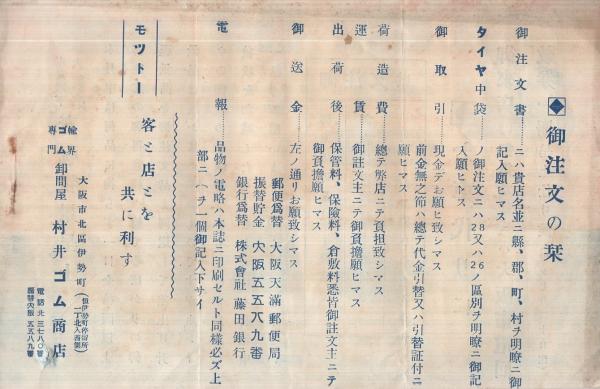 御注文の栞
御注文書……ニハ貴店名並ニ縣、郡、町、村ヲ明瞭ニ御
記入願ヒマス
タイヤ中袋……ノ御注文ニハ28又ハ26ノ區別ヲ明瞭ニ御記
入願ヒマス
御取引……現金デお願ヒ致シマス
前金無之節ハ總テ代金引替又ハ引替証付ニ
願ヒマス
荷造費……總テ弊店ニテ負担致シマス
運賃……御註文主ニテ御負擔願ヒマス
出荷後……保管料、保險料、倉敷料悉皆御註文主ニテ
御負擔願ヒマス
御送金……左ノ通リお願致シマス
郵便爲替 大阪天滿郵便局
振替貯金 大阪五五八九番
銀行爲替 株式會社藤田銀行
電報……品物ノ電略ハ本誌ニ印刷セルト同樣必ズ上
部ニ(ヲ一個御記入下サイ
モットー
客と店とを
共に利す
大阪市北區伊勢町
輪界
ゴム
専門
卸問屋 村井ゴム商店
電話北三七八〇番
振替大阪五五八九番